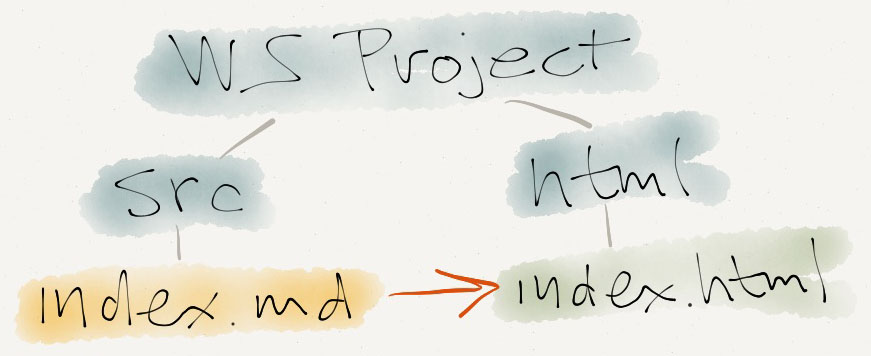 WS Project
src
html
index.md
index.html